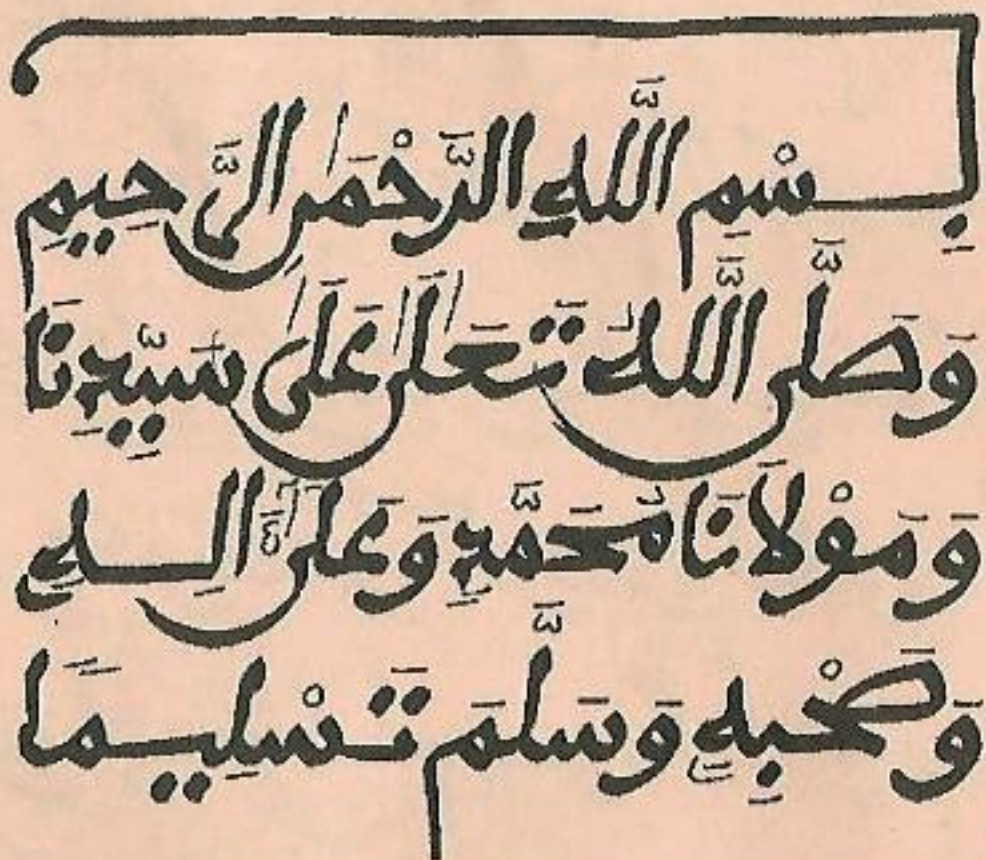 بِسْمِ اللَّهِ الرَّحْمَٰنِ الرَّحِيمِ
وَصَلَّى اللَّهُ تَعَٰلَىٰ عَلَىٰ سَيِّدِنَا
وَمَوْلَانَا مُحَمَّدٍ وَعَلَىٰٓ ءَالِهِ
وَصَحْبِهِ وَسَلَّمَ تَسْلِيمًا